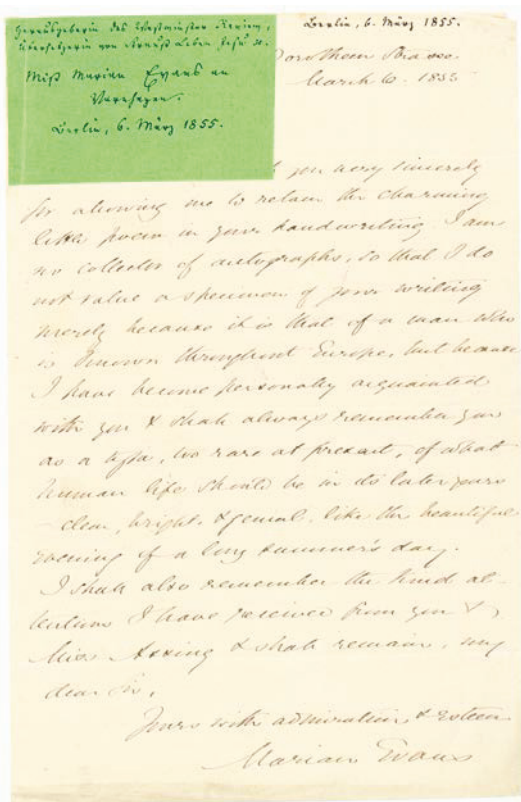 Herausgeberin des Westminster Review,
Übersetzerin von Strauß Leben Jesu
Miß Marian Evans an
Varnhagen.
Berlin, 6. März 1855.
Berlin, 6. März 1855.
Dorotheen Strasse
March 6. 1855
you very sincerely
for allowing me to retain the charming
little poem in your handwriting. I am
no collector of autographs, so that I do
not value a specimen of your writing
merely because it is that of a man who
is known throughout Europe, but because
I have become personally acquainted
with you & shall always remember you
as a type, too rare at present, of what
human life should be in its later years
– clear, bright, & genial, like the beautiful
evening of a long summer's day.
I shall also remember the kind at-
tentions I have received from you &
Miss Assing & shall remain, my
dear Sir,
Yours with admiration & esteem
Marian Evans